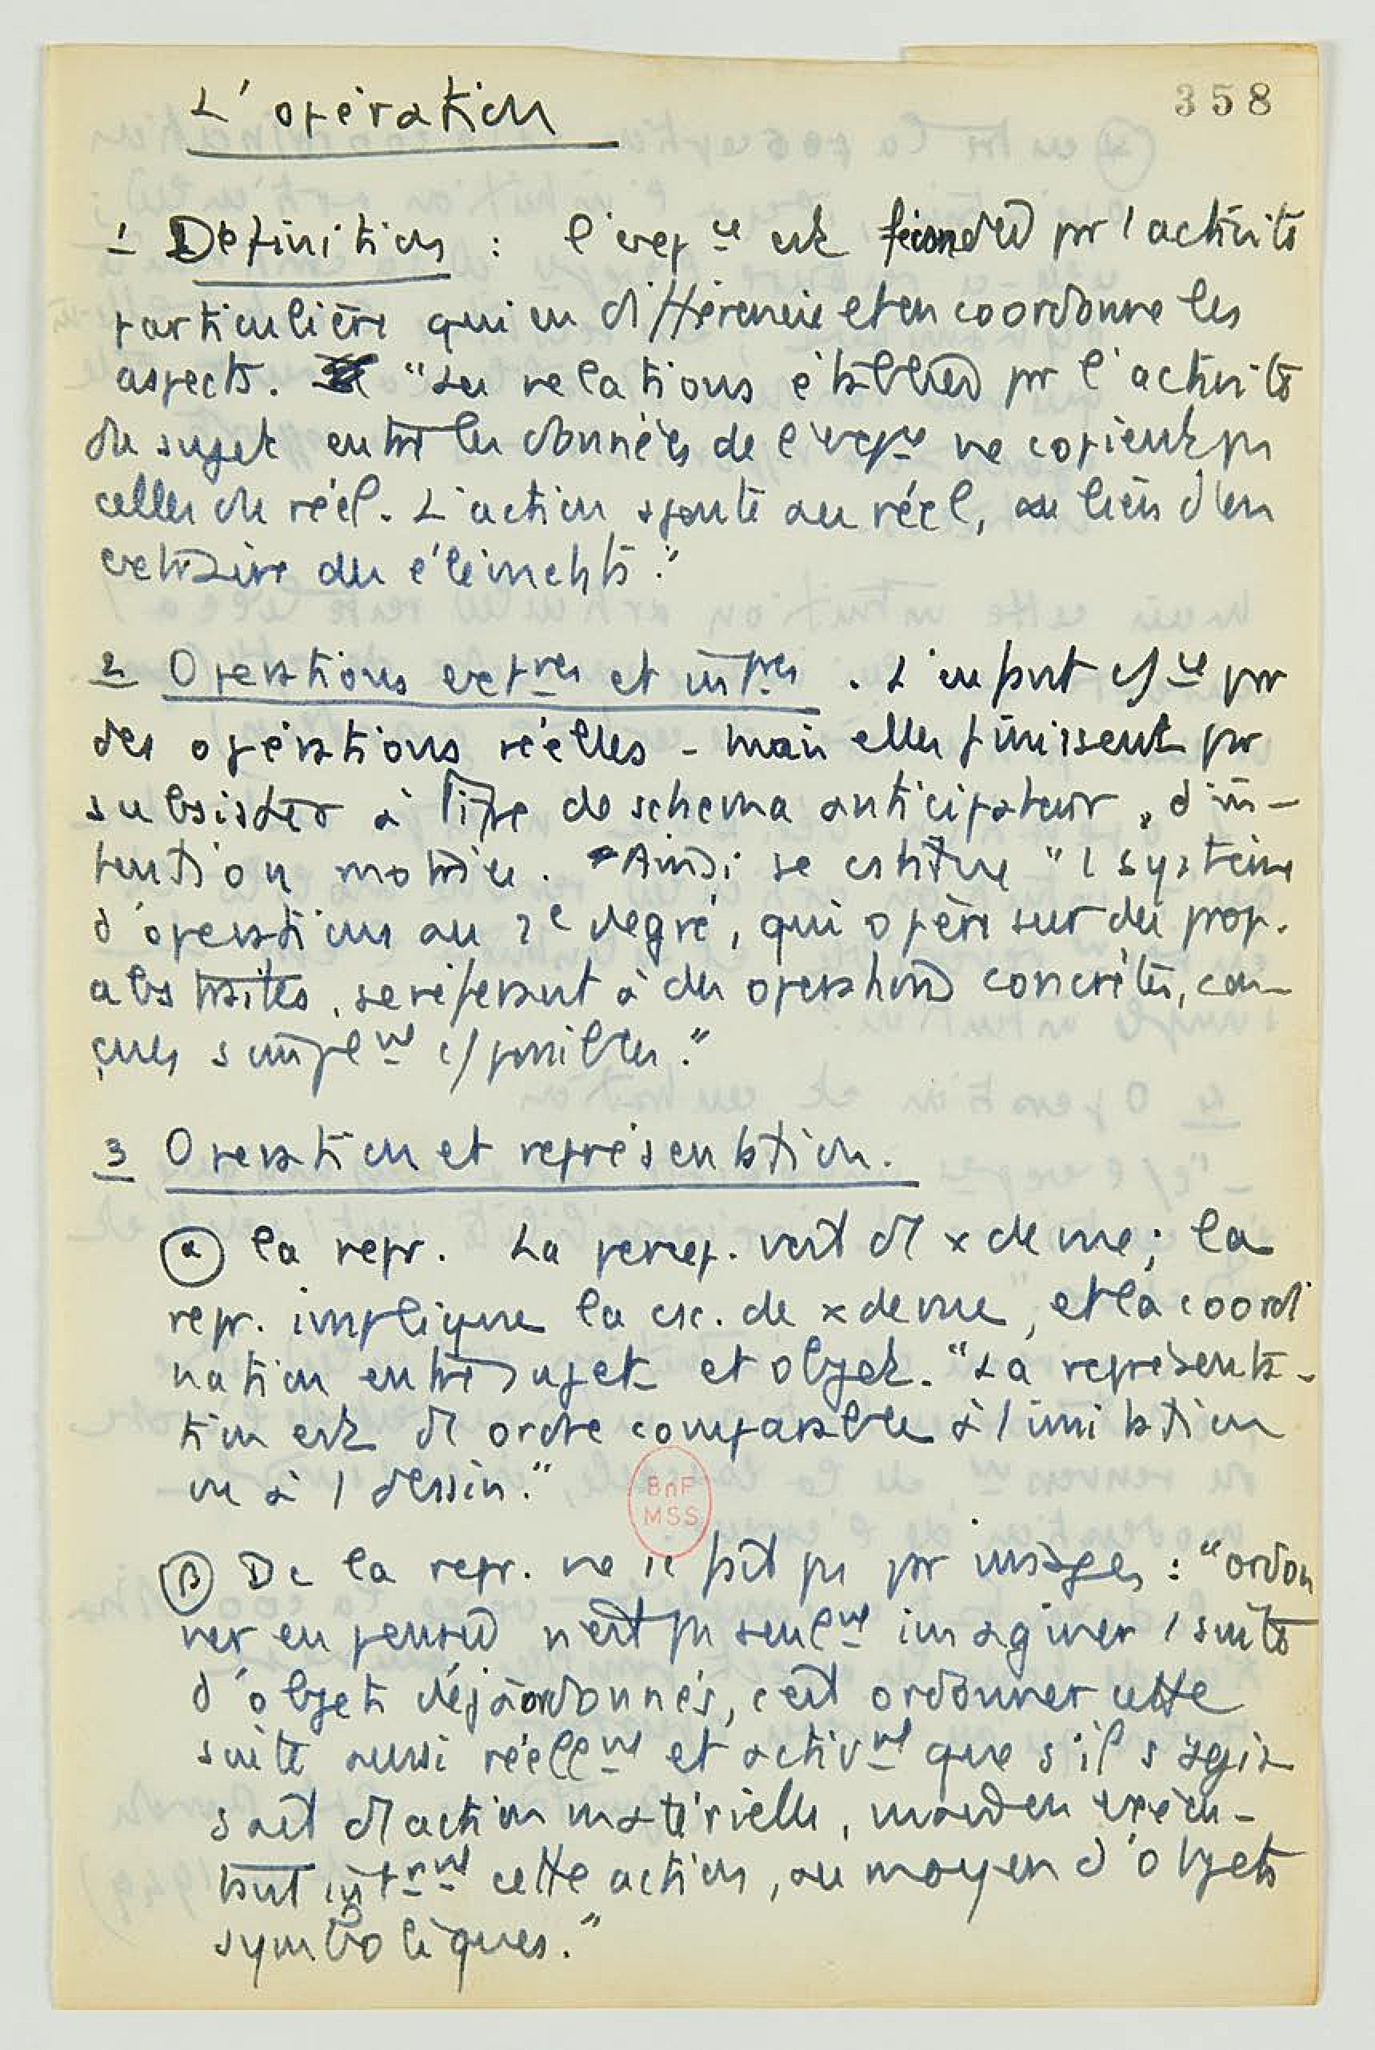 358
L'opération
1 Définition : l'exp ce est fécondée par l'activité
particulière qui en différencie et en coordonne les
aspects. "Les relations établies par l'activité
du sujet entre les données de l'exp ce ne copient pas
celles du réel. L'action ajoute au réel, au lieu d'en
extraire des éléments."
2 Opérations ext res et int res. L'enfant c/ ce par
des opérations réelles - mais elles finissent par
subsister à titre de schema anticipateur, d'in-
tention motrice. Ainsi se cstitue "1 système
d'opérations au 2e degré, qui opère sur des prop.
abstraites, se référant à des opérations concrètes, con-
çues simplem nt c/ possibles."
3 Opération et représentation.
α la repr. La percep. voit d1 x de vue ; la
repr. implique la csc. de x de vue, et la coordi
nation entre sujet et objet. "La représenta-
tion est d1 ordre comparable à l'imitation
ou à 1 dessin."
β De la repr. ne se fait pas par images : "ordon
ner en pensée n'est pas seulem nt imaginer 1 suite
d'objets déjà ordonnés, c'est ordonner cette
suite aussi réellem nt et activem nt que s'il s'agis
sait d1 action matérielle, en exécu-
tant int rm nt cette action, au moyen d'objets
symboliques."
BnF
MSS